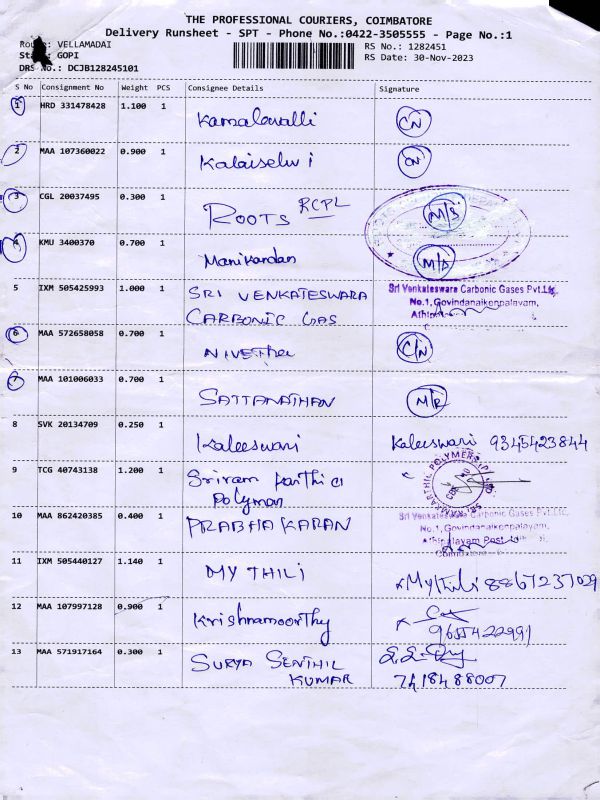 THE PROFESSIONAL COURIERS, COIMBATORE
Delivery Runsheet - SPT - Phone No.:0422-3505555 - Page No.:1
Route: VELLAMADAI RS No.: 1282451
GOPI RS Date: 30-Nov-2023
DRS No.: DCJB128245101
S No Consignment No Weight PCS Consignee Details Signature
1 HRD 331478428 1.100 1 Kamalavalli CN
2 MAA 107360022 0.900 1 Kalaiselvi CN
3 CGL 20037495 0.300 1 ROOTS RCPL M/S
4 KMU 3400370 0.700 1 Manikandan M/A
5 IXM 505425993 1.000 1 SRI VENKATESWARA
CARBONIC GAS
Sri Venkateswara Carbonic Gases Pvt.Ltd.
No.1, Govindanaikenpalayam,
6 MAA 572658058 0.700 1 NIVETHA C/N
7 MAA 101006033 0.700 1 SATTANATHAN M/R
8 SVK 20134709 0.250 1 Kaleeswari Kaleeswari 9345423844
9 TCG 40743138 1.200 1 Sriram Karthic
Polymer
10 MAA 862420385 0.400 1 PRABHAKARAN
Sri Venkateswara Carbonic Gases Pvt.Ltd.
No.1, Govindanaikenpalayam,
Athipalayam Post
11 IXM 505440127 1.140 1 MYTHILI Mythili 8867237029
12 MAA 107997128 0.900 1 Krishnamoorthy
9655422991
13 MAA 571917164 0.300 1 SURYA SENTHIL
KUMAR 7418488007